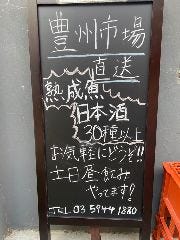 豊州市場
直送
熟成魚
日本酒
30種以上
お気軽にどうぞ!!
土日昼飲み
やってます!
TEL 03 5944 1880